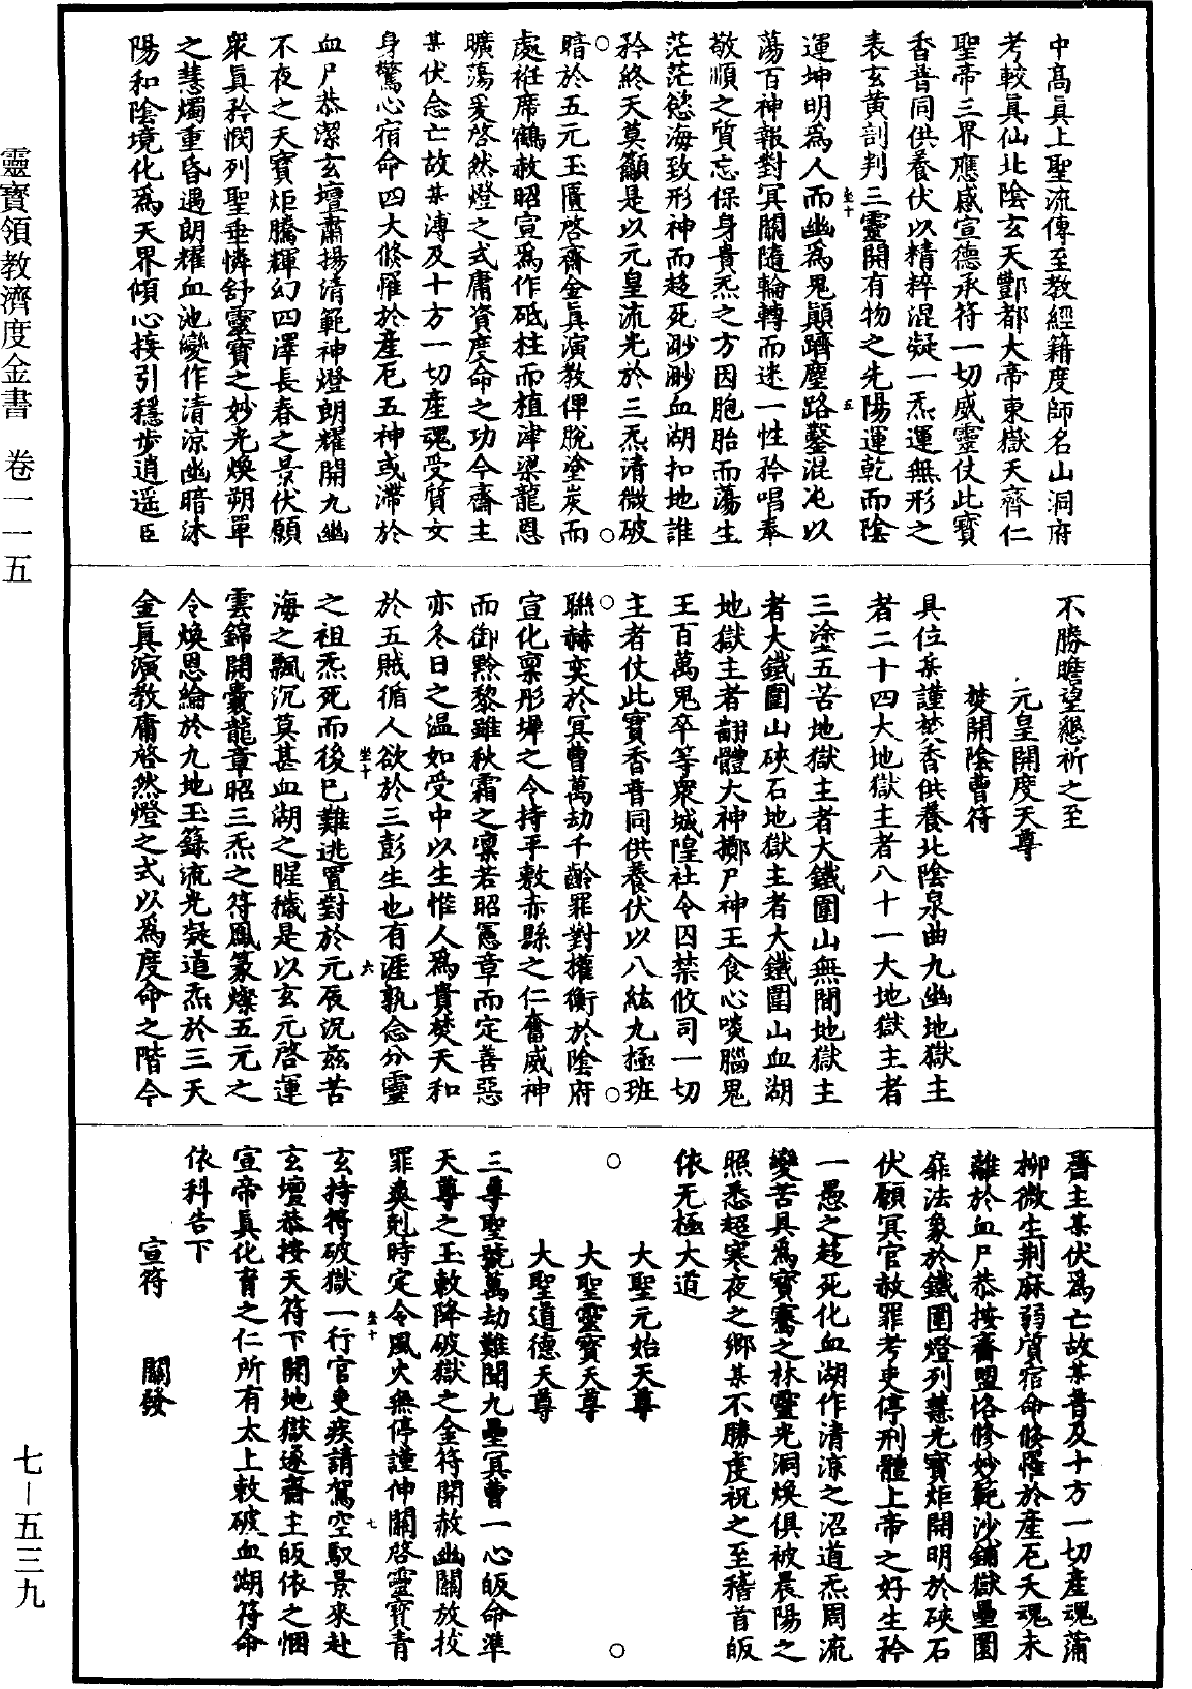 中高眞上聖流傳至教經籍度師名山洞府
考較眞仙北陰玄天酆都大帝東嶽天齊仁
聖帝三界應感宣德承符一切威靈仗此寶
香普同供養伏以精粹混凝一炁運無形之
表玄黃剖判三靈開有物之先陽運乾而陰
運坤明爲人而幽爲鬼顛躋塵路鑿混沌以
蕩百神報對冥關隨輪轉而迷一性矜唱奉
敬順之質忘保身貴炁之方因胞胎而蕩生
茫茫慾海致形神而趍死渺渺血湖扣地誰
矜終天莫籲是以元皇流光於三炁清微破
暗於五元玉匱啓齋金眞演教俾脫塗炭而
處袵席鶴赦昭宣爲作砥柱而植津梁龍恩
曠蕩爰啓然燈之式庸資度命之功今齋主
某伏念亡故某溥及十方一切產魂受質女
身驚心宿命四大倏罹於產厄五神或滯於
血尸恭潔玄壇肅揚清範神燈朗耀開九幽
不夜之天寶炬騰輝幻四澤長春之景伏願
衆眞矜憫列聖垂憐舒靈寶之妙光煥朔單
之慧燭重昏遇朗耀血池變作清涼幽暗沐
陽和陰境化爲天界傾心接引穩步逍遥臣
不勝瞻望懇祈之至
元皇開度天尊
焚開陰曹符
具位某謹焚香供養北陰泉曲九幽地獄主
者二十四大地獄主者八十一大地獄主者
三塗五苦地獄主者大鐵圍山無間地獄主
者大鐵圍山硤石地獄主者大鐵圍山血湖
地獄主者翻體大神擲尸神王食心啖腦鬼
王百萬鬼卒等衆城隍社令囚禁收司一切
主者仗此寶香普同供養伏以八紘九極班
聯赫奕於冥曹萬劫千齡罪對權衡於陰府
宣化稟彤墀之令持平敷赤縣之仁奮威神
而御黔黎雖秋霜之凛若昭憲章而定善惡
亦冬日之温如受中以生惟人爲貴焚天和
於五賊循人欲於三彭生也有涯孰念分靈
之祖炁死而後已難逃置對於元辰沉兹苦
海之飄沉莫甚血湖之腥穢是以玄元啓運
雲錦開囊龍章昭三炁之符鳳篆燦五元之
令煥恩綸於九地玉籙流光凝道炁於三天
金眞演教庸啓然燈之式以爲度命之階今
齋主某伏爲亡故某普及十方一切產魂蒲
柳微生荆麻弱質宿命倏罹於產厄夭魂未
離於血尸恭按齋盟恪修妙範沙鋪獄壘圖
疿法象於鐵圍燈列慧光寶炬開明於硤石
伏願冥官赦罪考吏停刑體上帝之好生矜
一愚之趍死化血湖作清涼之沼道炁周流
變苦具爲寶騫之林靈光洞煥俱被晨陽之
照悉超寒夜之鄉某不勝虔祝之至稽首皈
依无極大道
大聖元始天尊
大聖靈寶天尊
大聖道德天尊
三尊聖號萬劫難聞九壘冥曹一心皈命準
天尊之玉敕降破獄之金符開赦幽關放拔
罪爽剋時定令風火無停謹伸關啓靈寶青
玄持符破獄一行官吏疾請駕空馭景來赴
玄壇恭按天符下開地獄逐齋主皈依之悃
宣帝眞化育之仁所有太上敕破血湖符命
依科告下
宣符　關發
靈寶領教濟度金書　卷一一五
七-五三九